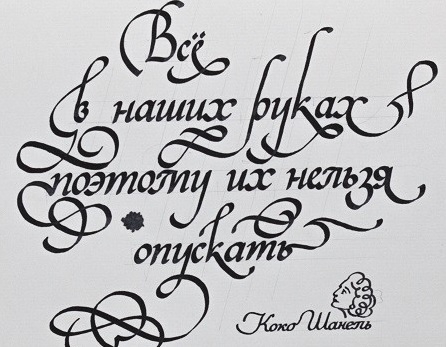 Всё
в наших руках
поэтому их нельзя
опускать
Коко Шанель